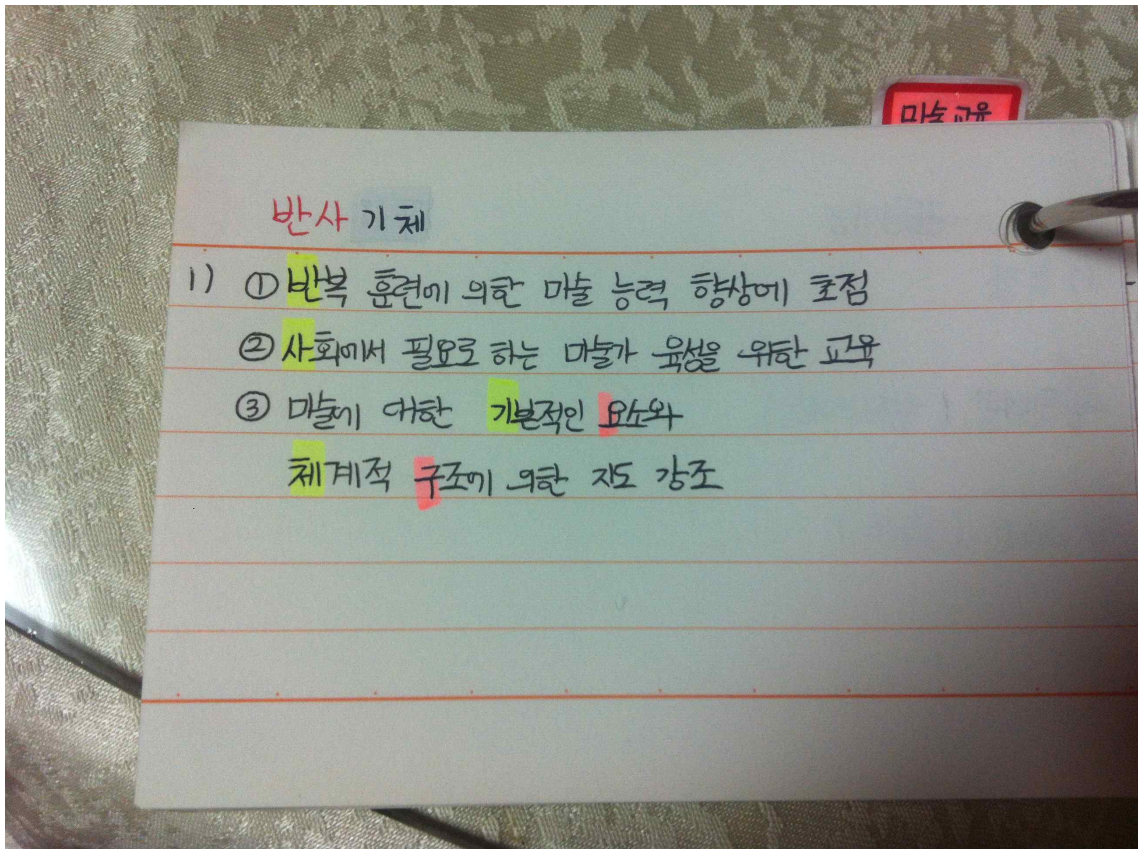 미술교육
반사 기체
1) ① 반복 훈련에 의한 미술 능력 향상에 초점
② 사회에서 필요로 하는 미술가 육성을 위한 교육
③ 미술에 대한 기본적인 요소와
체계적 구조에 의한 지도 강조